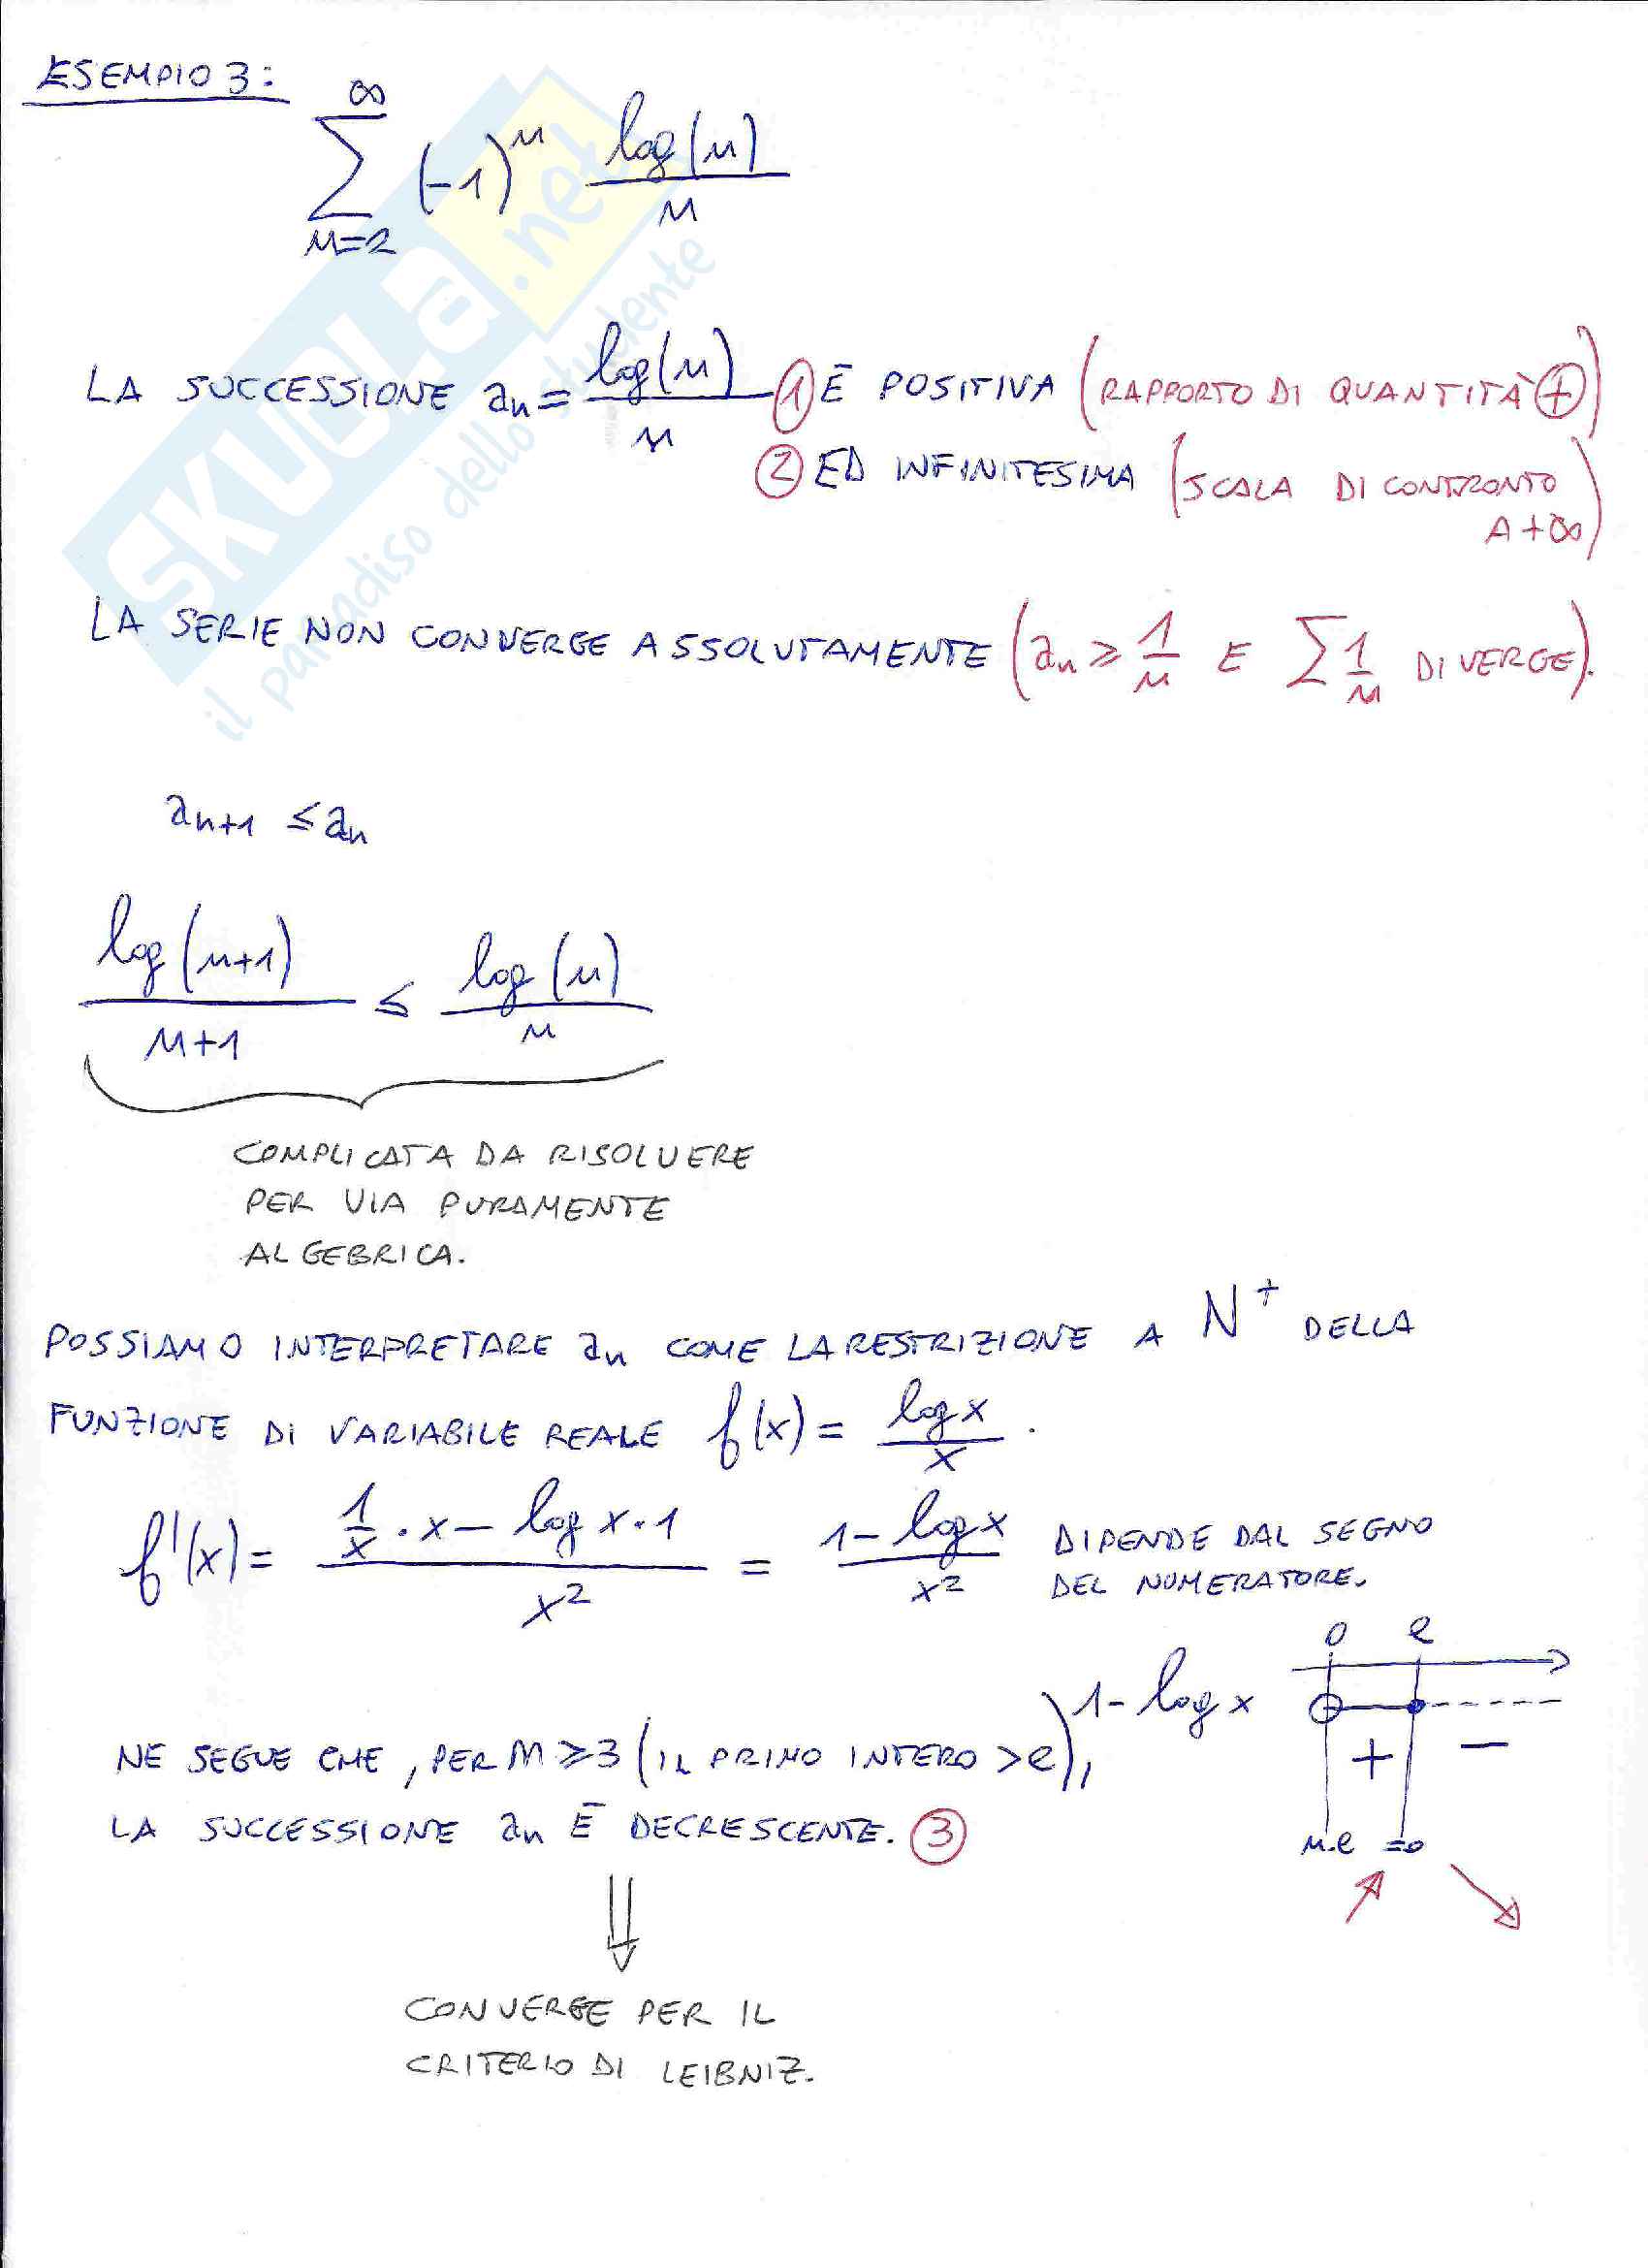 ESEMPIO 3:
∑_{n=2}^{∞} (-1)^n log(n)/n
LA SUCCESSIONE an = log(n)/n ① È POSITIVA (RAPPORTO DI QUANTITÀ ⊕)
② ED INFINITESIMA (SCALA DI CONFRONTO
A +∞)
LA SERIE NON CONVERGE ASSOLUTAMENTE (an ≥ 1/n E ∑ 1/n DIVERGE).
an+1 ≤ an
log(n+1)/(n+1) ≤ log(n)/n
COMPLICATA DA RISOLVERE
PER VIA PURAMENTE
ALGEBRICA.
POSSIAMO INTERPRETARE an COME LA RESTRIZIONE A N⁺ DELLA
FUNZIONE DI VARIABILE REALE f(x) = log x / x .
f'(x) = (1/x · x − log x · 1)/x² = (1 − log x)/x² DIPENDE DAL SEGNO
DEL NUMERATORE.
0 e
1 − log x
+ −
n.e =0
NE SEGUE CHE, PER n ≥ 3 (IL PRIMO INTERO > e),
LA SUCCESSIONE an È DECRESCENTE. ③
⇓
CONVERGE PER IL
CRITERIO DI LEIBNIZ.
SKUOLA.net
il paradiso dello studente